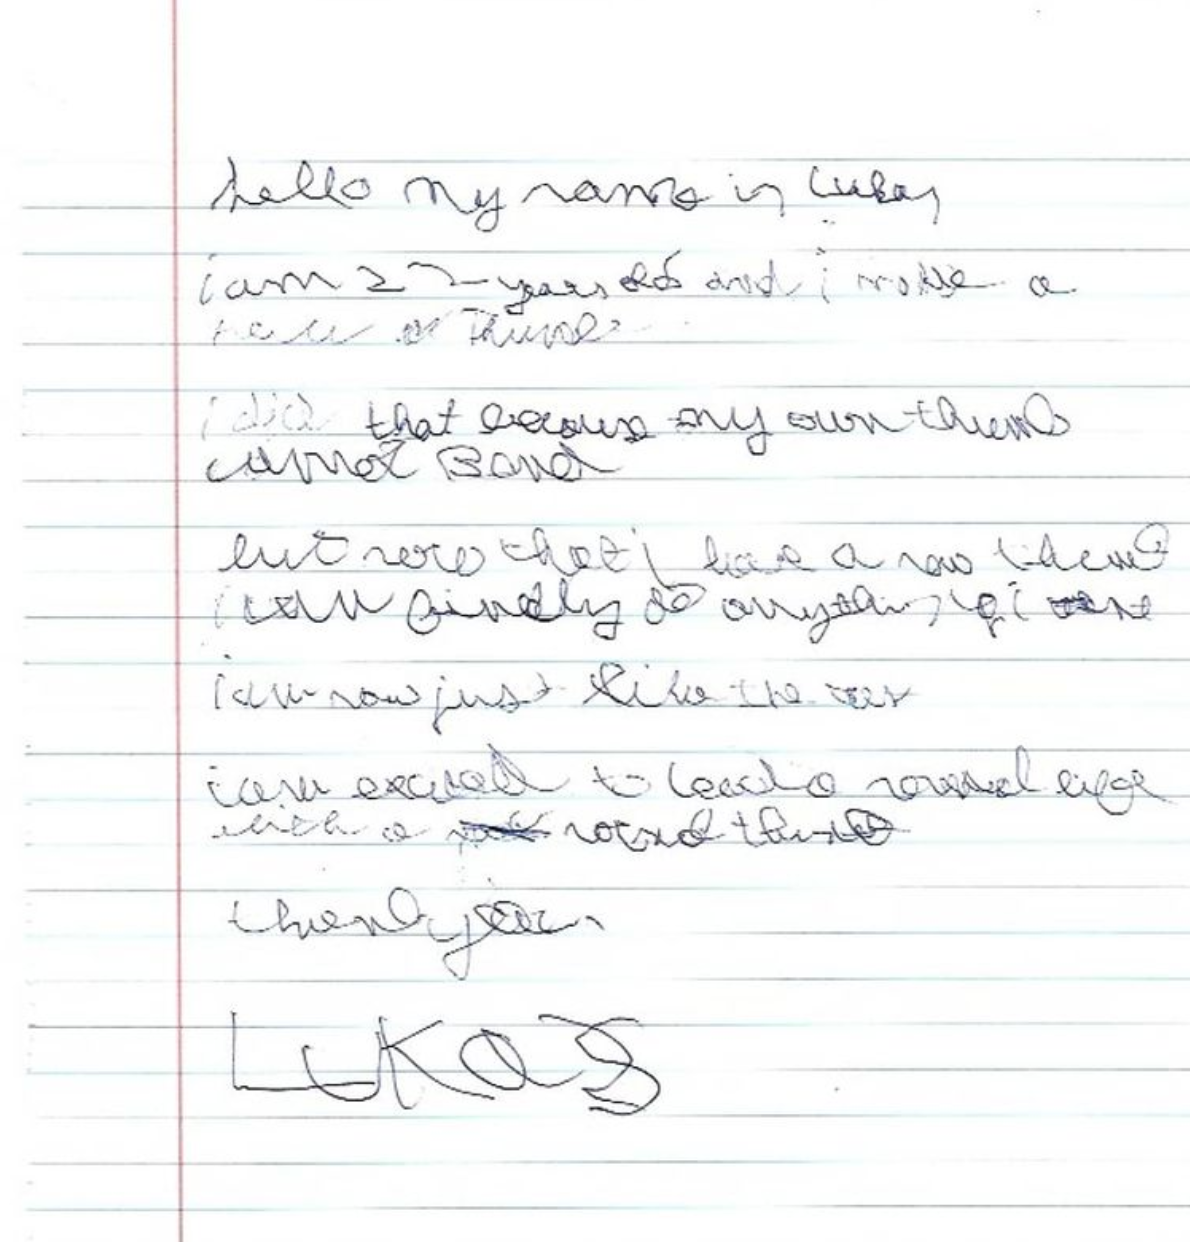 hello my name is Lukas
i am 22 years old and i made a
new thumb
i did that because my own thumb
cannot Bend
but now that i have a new thumb
i can finally do anything i
i am now just like the rest
i am excited to lead a normal life
with a normal thumb
thank you
LUKAS